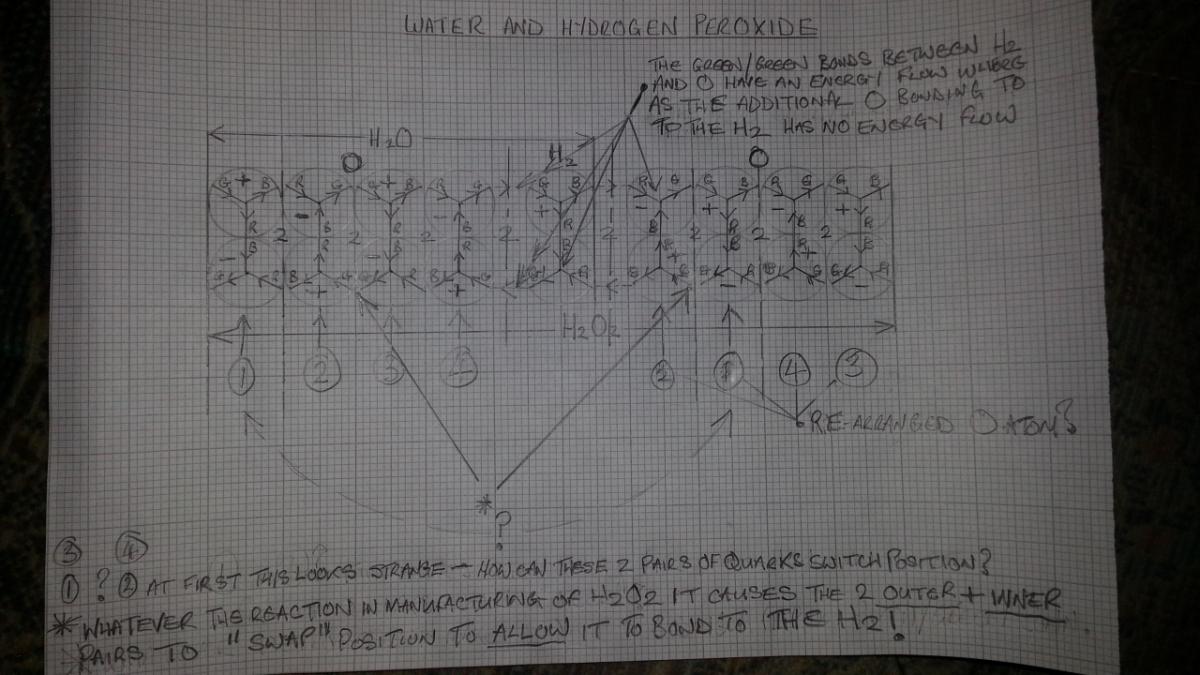 WATER AND HYDROGEN PEROXIDE
THE GREEN/GREEN BONDS BETWEEN H2
AND O HAVE AN ENERGY FLOW WHERE
AS THE ADDITIONAL O BONDING TO
TO THE H2 HAS NO ENERGY FLOW
H2O
O H2 O
G + B R G G + B R G G B R G G B R G G B
- - + - + - +
R B R B R B R R
2 2 2 2 2 2 2 2
B R B R B B R B
- + - + + - + -
H2O2
1 2 3 4 2 1 4 3
RE-ARRANGED O ATOM?
* ?
3 4
1 ? 2 AT FIRST THIS LOOKS STRANGE - HOW CAN THESE 2 PAIRS OF QUARKS SWITCH POSITION?
* WHATEVER THE REACTION IN MANUFACTURING OF H2O2 IT CAUSES THE 2 OUTER + INNER
PAIRS TO "SWAP" POSITION TO ALLOW IT TO BOND TO THE H2!